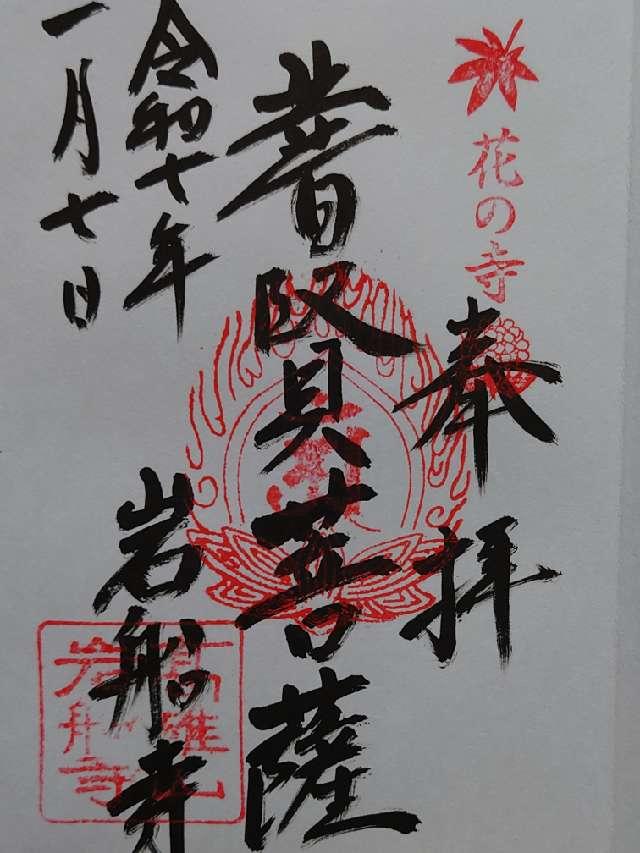 花の寺
奉拝
普賢菩薩
令和七年
一月七日
岩船寺
高雄山
岩船寺